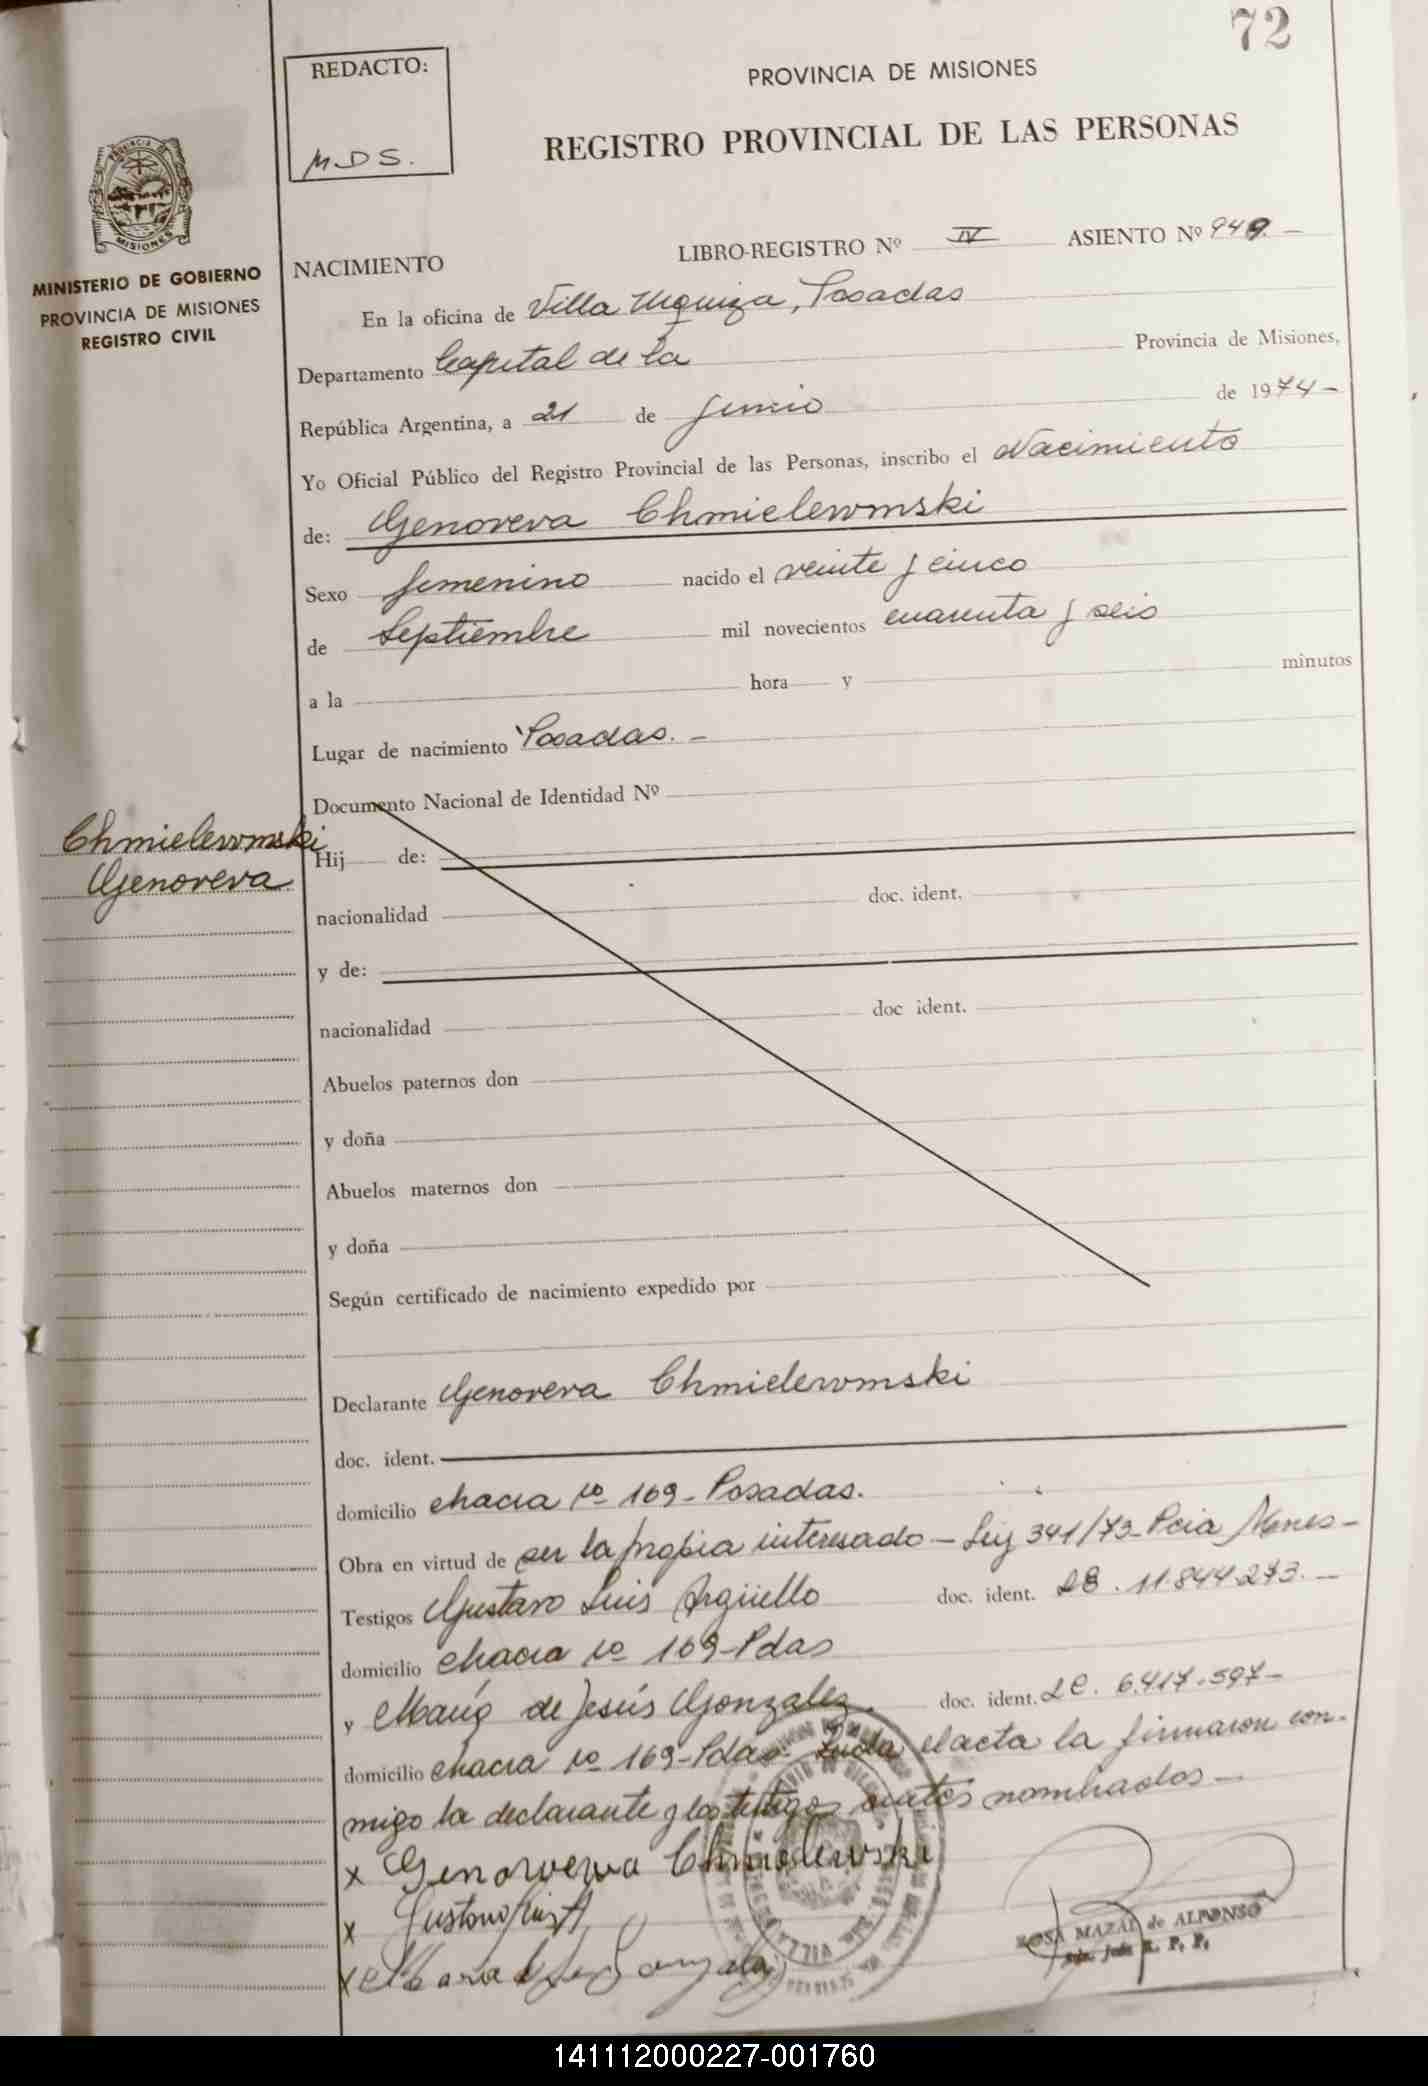 72
REDACTO:
M.D.S.
PROVINCIA DE MISIONES
REGISTRO PROVINCIAL DE LAS PERSONAS
PROVINCIA DE
MISIONES
MINISTERIO DE GOBIERNO
PROVINCIA DE MISIONES
REGISTRO CIVIL
NACIMIENTO LIBRO-REGISTRO Nº IV ASIENTO Nº 949.-
En la oficina de Villa Urquiza, Posadas
Departamento Capital de la Provincia de Misiones,
República Argentina, a 21 de Junio de 1974-
Yo Oficial Público del Registro Provincial de las Personas, inscribo el Nacimiento
de: Genoveva Chmielewmski
Sexo femenino nacido el veinte y cinco
de Septiembre mil novecientos cuarenta y seis
a la hora y minutos
Lugar de nacimiento Posadas.-
Documento Nacional de Identidad Nº
Chmielewmski
Genoveva
Hij de:
nacionalidad doc. ident.
y de:
nacionalidad doc ident.
Abuelos paternos don
y doña
Abuelos maternos don
y doña
Según certificado de nacimiento expedido por
Declarante Genoveva Chmielewmski
doc. ident.
domicilio chacra nº 169- Posadas.
Obra en virtud de ser la propia interesado - Ley 341/73- Pcia Mnes-
Testigos Gustavo Luis Argüello doc. ident. 11.844.273.-
domicilio chacra nº 169-Pdas
y María de Jesús Gonzalez. doc. ident. LC. 6.417.597-
domicilio chacra nº 169-Pdas. el acta la firmaron con-
migo la declarante y los testigos antes nombrados-
x Genorvewa Chmioslewski
x Gustavo Luis A.
x Gonzalez
ROSA MAZAL de ALFONSO
R. P. P.
141112000227-001760